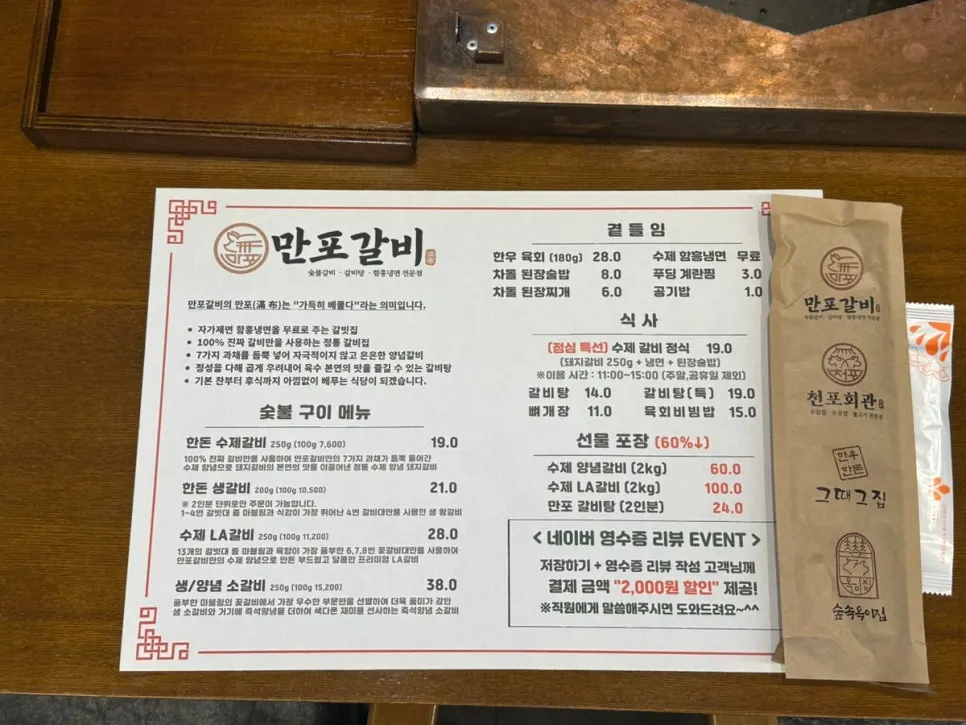 만포갈비
숯불갈비 · 갈비탕 · 함흥냉면 전문점
만포갈비의 만포(滿 布)는 "가득히 베풀다"라는 의미입니다.
• 자가제면 함흥냉면을 무료로 주는 갈빗집
• 100% 진짜 갈비만을 사용하는 정통 갈비집
• 7가지 과채를 듬뿍 넣어 자극적이지 않고 은은한 양념갈비
• 정성을 다해 곱게 우려내어 육수 본연의 맛을 즐길 수 있는 갈비탕
• 기본 찬부터 후식까지 아낌없이 베푸는 식당이 되겠습니다.
숯불 구이 메뉴
한돈 수제갈비 250g (100g 7,600) 19.0
100% 진짜 갈비만을 사용하여 만포갈비만의 7가지 과채가 듬뿍 들어간
수제 양념으로 돼지갈비의 본연의 맛을 이끌어낸 정통 수제 양념 돼지갈비
한돈 생갈비 200g (100g 10,500) 21.0
※ 2인분 단위로만 주문이 가능합니다.
1~4번 갈빗대 중 마블링과 식감이 가장 뛰어난 4번 갈비대만을 사용한 생 왕갈비
수제 LA갈비 250g (100g 11,200) 28.0
13개의 갈빗대 중 마블링과 육향이 가장 풍부한 6,7,8번 꽃갈비대만을 사용하여
만포갈비만의 수제 양념으로 만든 부드럽고 달콤한 프리미엄 LA갈비
생/양념 소갈비 250g (100g 15,200) 38.0
풍부한 마블링의 꽃갈비에서 가장 우수한 부분만을 선별하여 더욱 풍미가 강한
생 소갈비와 거기에 즉석양념을 더하여 색다른 재미를 선사하는 즉석양념 소갈비
곁들임
한우 육회 (180g) 28.0 수제 함흥냉면 무료
차돌 된장술밥 8.0 푸딩 계란찜 3.0
차돌 된장찌개 6.0 공기밥 1.0
식사
(점심 특선) 수제 갈비 정식 19.0
(돼지갈비 250g + 냉면 + 된장술밥)
※이용 시간 : 11:00~15:00 (주말,공휴일 제외)
갈비탕 14.0 갈비탕(특) 19.0
뼈개장 11.0 육회비빔밥 15.0
선물 포장 (60%↓)
수제 양념갈비 (2kg) 60.0
수제 LA갈비 (2kg) 100.0
만포 갈비탕 (2인분) 24.0
< 네이버 영수증 리뷰 EVENT >
저장하기 + 영수증 리뷰 작성 고객님께
결제 금액 "2,000원 할인" 제공!
※직원에게 말씀해주시면 도와드려요~^^
만포
만포갈비
숯불갈비 · 갈비탕 · 함흥냉면 전문점
천포
천포회관
한우
한돈
그때그집
숲속옥이집